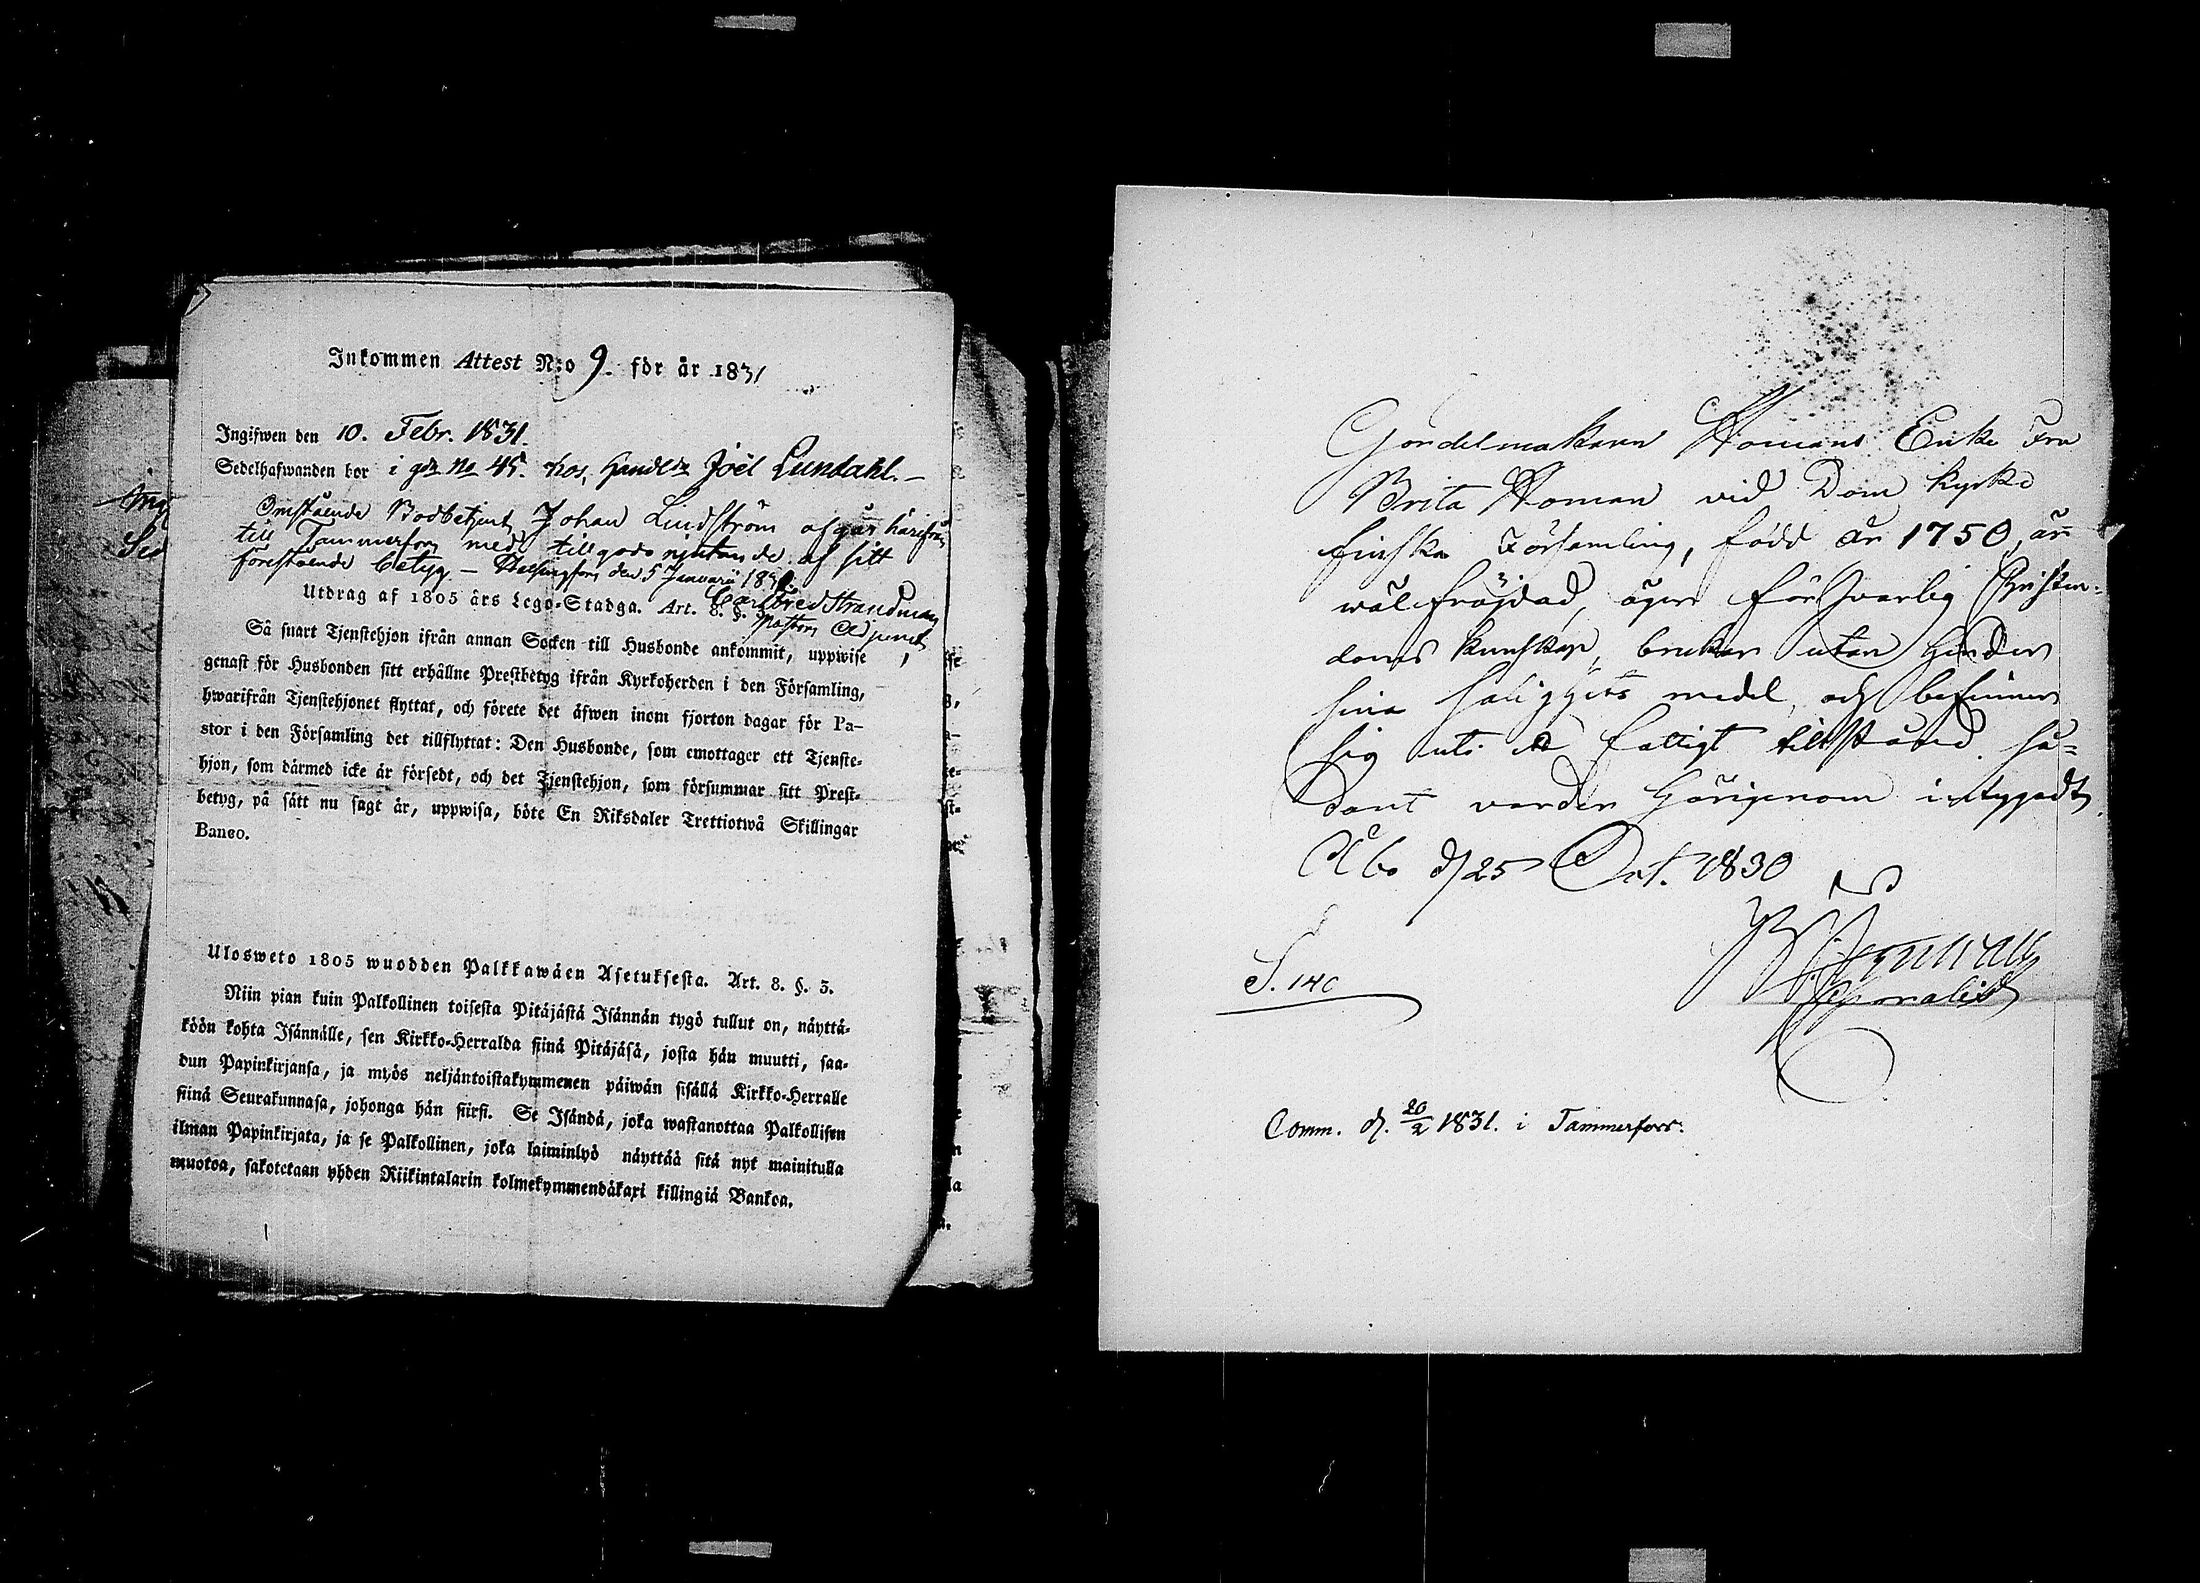 Inkommen Attest N:o 9. för år 1831
Ingifwen den 10. Febr. 1831.
Sedelhafwanden bor i gdn No 45. hos Handl: Joël Lundahl. –
Omstående Bodbetjent Johan Lindström afgår härifrån
till Tammerfors med tillgodonjutande af sitt
förestående betyg – Helsingfors den 5 Januarii 1831.
Carl Fred Strandman
Pastors Adjunct
Utdrag af 1805 års Lego-Stadga. Art. 8. §.
Så snart Tjenstehjon ifrån annan Socken till Husbonde ankommit, uppwise
genast för Husbonden sitt erhållne Prestbetyg ifrån Kyrkoherden i den Församling,
hwarifrån Tjenstehjonet flyttat, och förete det äfwen inom fjorton dagar för Pa-
stor i den Församling det tillflyttat: Den Husbonde, som emottager ett Tjenste-
hjon, som därmed icke är försedt, och det Tjenstehjon, som försummar sitt Prest-
betyg, på sätt nu sagt är, uppwisa, böte En Riksdaler Trettiotwå Skillingar
Banco.
Ulosweto 1805 wuodden Palkkawäen Asetuksesta. Art. 8. §. 3.
Niin pian kuin Palkollinen toisesta Pitäjästä Isännän tygö tullut on, näyttä-
köön kohta Isännälle, sen Kirkko-Herralda siinä Pitäjäsä, josta hän muutti, saa-
dun Papinkirjansa, ja myös neljäntoistakymmenen päiwän sisällä Kirkko-Herralle
siinä Seurakunnasa, johonga hän siirsi. Se Isändä, joka wastanottaa Palkollisen
ilman Papinkirjata, ja se Palkollinen, joka laiminlyö näyttää sitä nyt mainitulla
muotoa, sakotetaan yhden Riikintalarin kolmekymmendäkaxi killingiä Bankoa.
Gördelmakaren Homans Enka Fru
Brita Homan vid Dom kyrko
finska Församling, född år 1750, är
wälfräjdad, äger försvarlig Christen-
doms kunskap, brukar utan hinder
sina salighets medel, och befinner
sig uti ett fattigt tillstånd så-
dant varder härigenom intygadt.
Åbo d 25 Oct. 1830
S. 140
Comm. d. 20/2 1831. i Tammerfors.